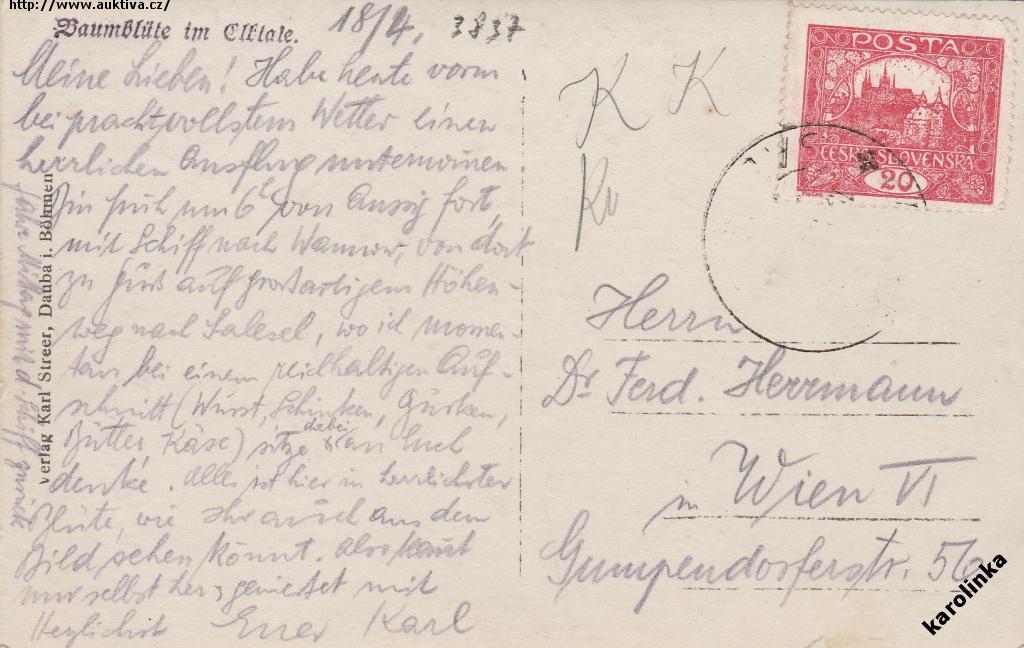 http://www.auktiva.cz/
Baumblüte im Elbtale.
18/4.
3837
Meine Lieben! Habe heute vorm
bei prachtvollstem Wetter einen
herrlichen Ausflug unternommen.
Bin früh um 6h von Aussig fort,
mit Schiff nach Wannow, von dort
zu Fuß auf großartigem Höhen-
weg nach Salesel, wo ich momen-
tan bei einem reichhaltigen Auf-
schnitt (Wurst, Schinken, Gurken,
Butter, Käse) sitze dabei an Euch
denke. Alles ist hier in herrlichster
Blüte, wie Ihr auch aus dem
Bild sehen könnt. Also
nur selbst her, genießet mit
Herzlichst Euer Karl
fahre Mittag mit d. Schiff zurück
Verlag Karl Streer, Dauba i. Böhmen
K K
POSTA
ČESKO-SLOVENSKÁ
20
Herrn
Dr Ferd. Herrmann
in Wien VI
Gumpendorferstr. 56
karolinka